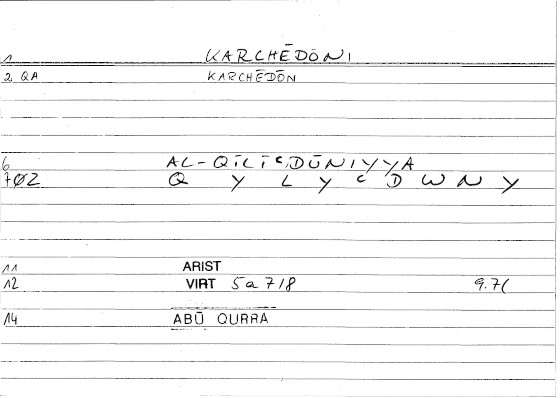 1 KARCHĒDŌNI
2 QA KARCHĒDŌN
6 AL-QĪLĪᶜDŪNIYYA
7 ØZ Q Y L Y ᶜ D W N Y
11 ARIST
12 VIRT 5a 7/8 9.7(
14 ABŪ QURRA